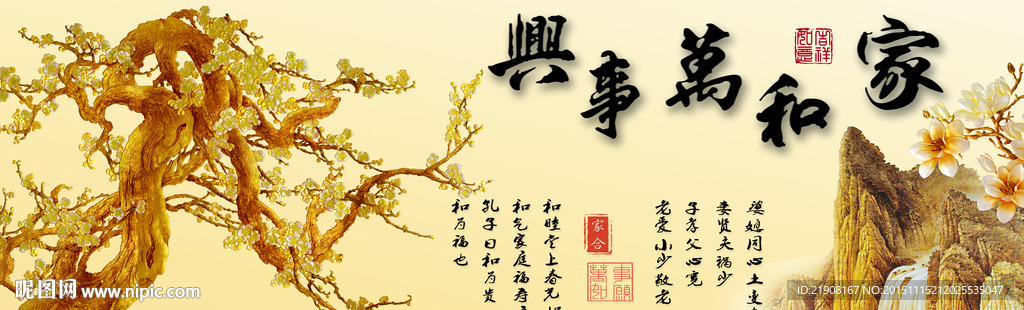 家和萬事興
吉祥
如意
婆媳同心土变
妻贤夫祸少
子孝父心宽
老爱小少敬老
家合
事願
萬如
和睦堂上春光
和气家庭福寿
孔子曰和为贵
和为福也
昵图网 www.nipic.com
ID:21908167 NO:20151115212025535047